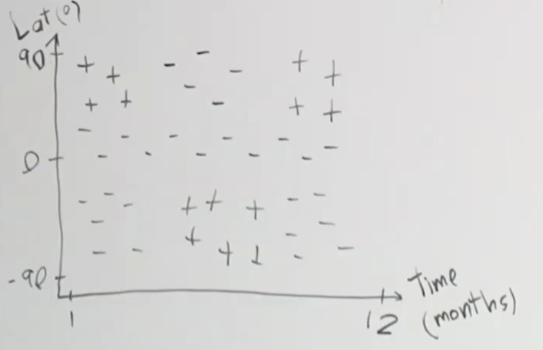 Lat(°)
90
0
-90
1
12
Time
(months)